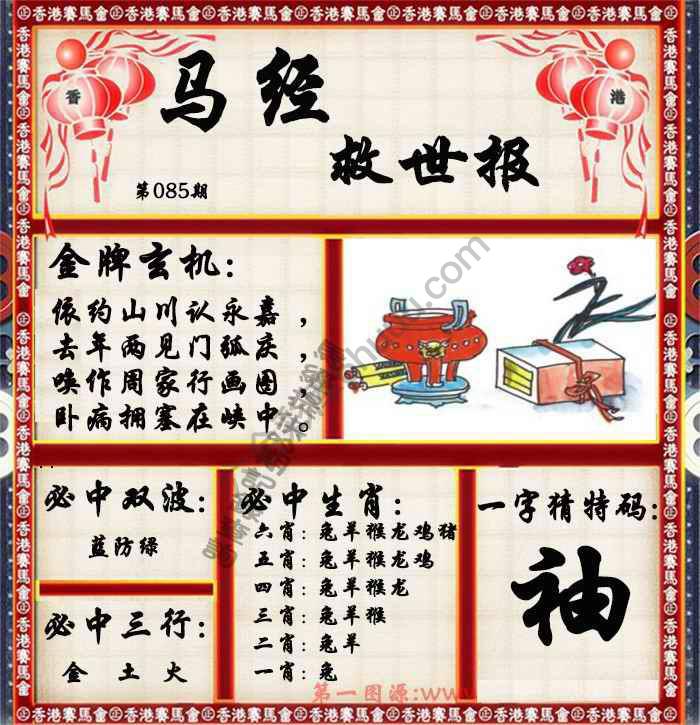 香港賽馬會
香
港
马经
救世报
第085期
金牌玄机:
依约山川认永嘉，
去年两见门弧庆，
唤作周家行画图，
卧病拥塞在峡中。
必中双波:
蓝防绿
必中三行:
金 土 火
必中生肖:
六肖: 兔羊猴龙鸡猪
五肖: 兔羊猴龙鸡
四肖: 兔羊猴龙
三肖: 兔羊猴
二肖: 兔羊
一肖: 兔
一字猜特码:
袖
第一图源:www